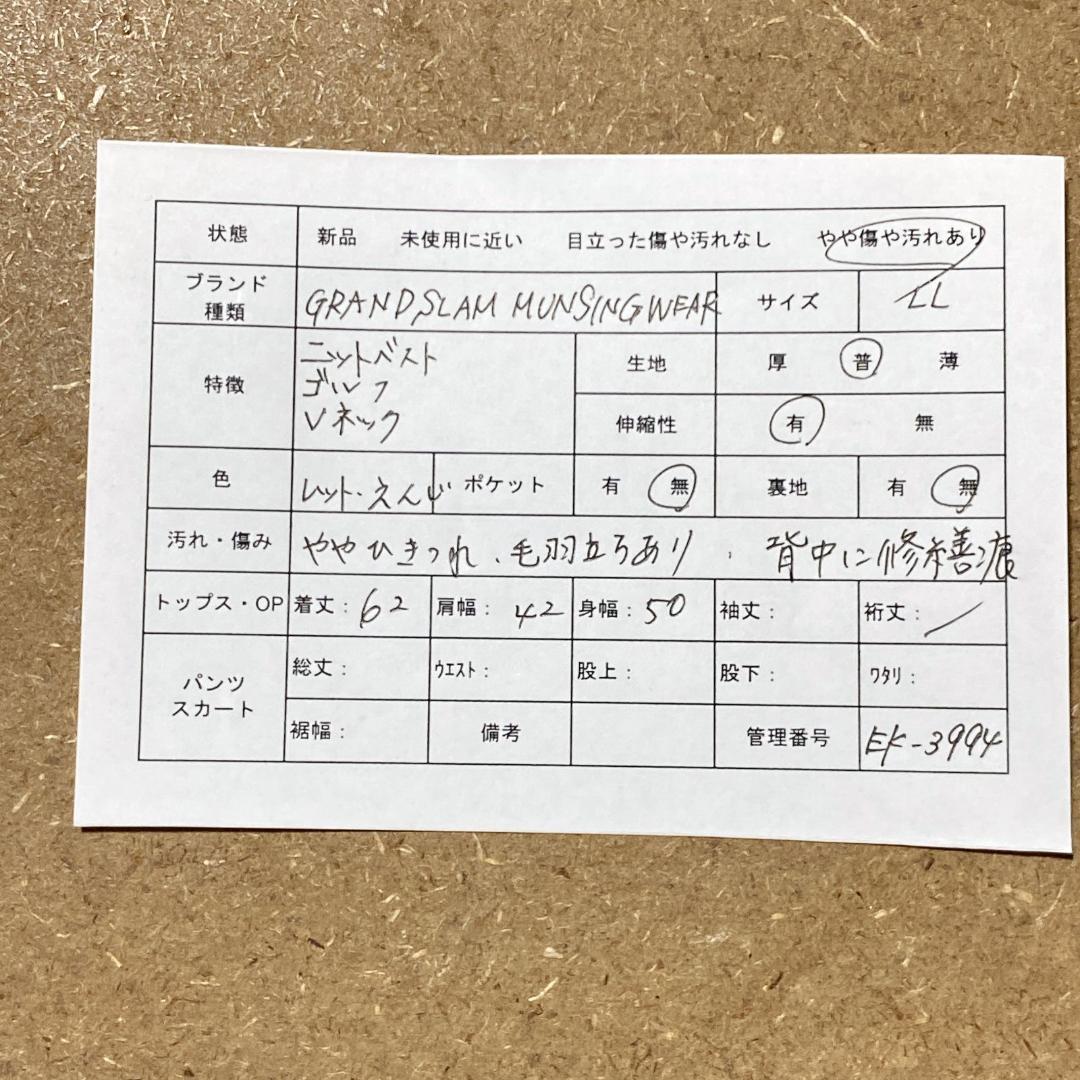 状態 新品 未使用に近い 目立った傷や汚れなし やや傷や汚れあり
ブランド
種類 GRANDSLAM MUNSINGWEAR サイズ LL
特徴 ニットベスト
ゴルフ
Vネック
生地 厚 普 薄
伸縮性 有 無
色 レット・えんじ ポケット 有 無 裏地 有 無
汚れ・傷み ややひきつれ、毛羽立ちあり、背中に修繕痕
トップス・OP 着丈: 62 肩幅: 42 身幅: 50 袖丈: 裄丈: /
パンツ
スカート
総丈: ウエスト: 股上: 股下: ワタリ:
裾幅: 備考 管理番号 EK-3994